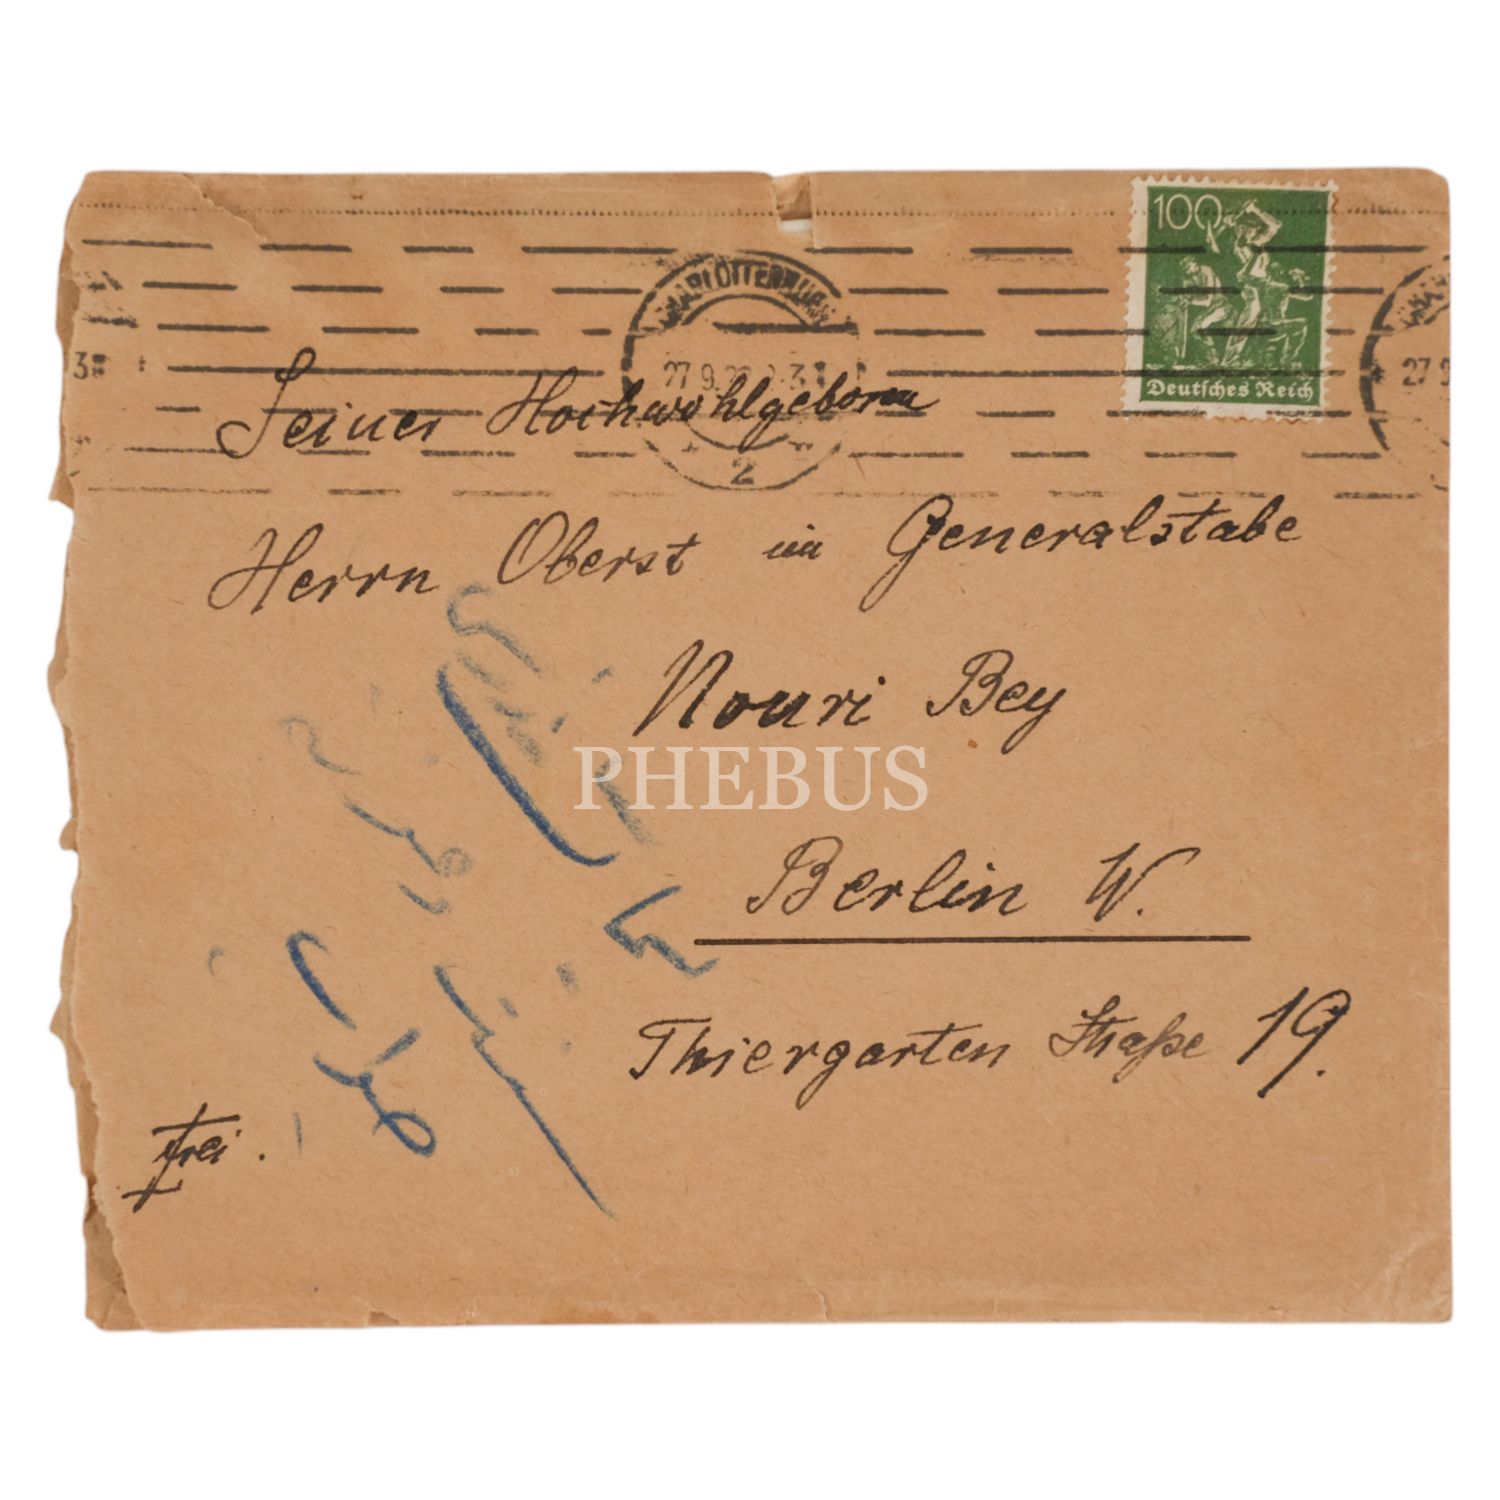 100
Deutsches Reich
CHARLOTTENBURG
27.9
2
Seiner Hochwohlgeboren
Herrn Oberst im Generalstabe
Nouri Bey
PHEBUS
Berlin W.
Thiergarten Straße 19.
frei.